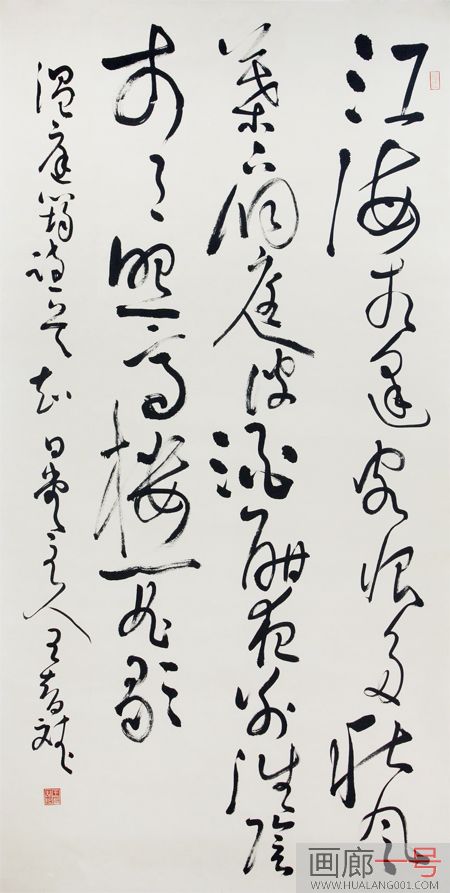 江海相逢客恨多秋風
葉下洞庭波酒酣夜别淮陰
市月照高樓一曲歌
温庭筠詩一首 主人王
画廊一号
WWW.HUALANG001.COM